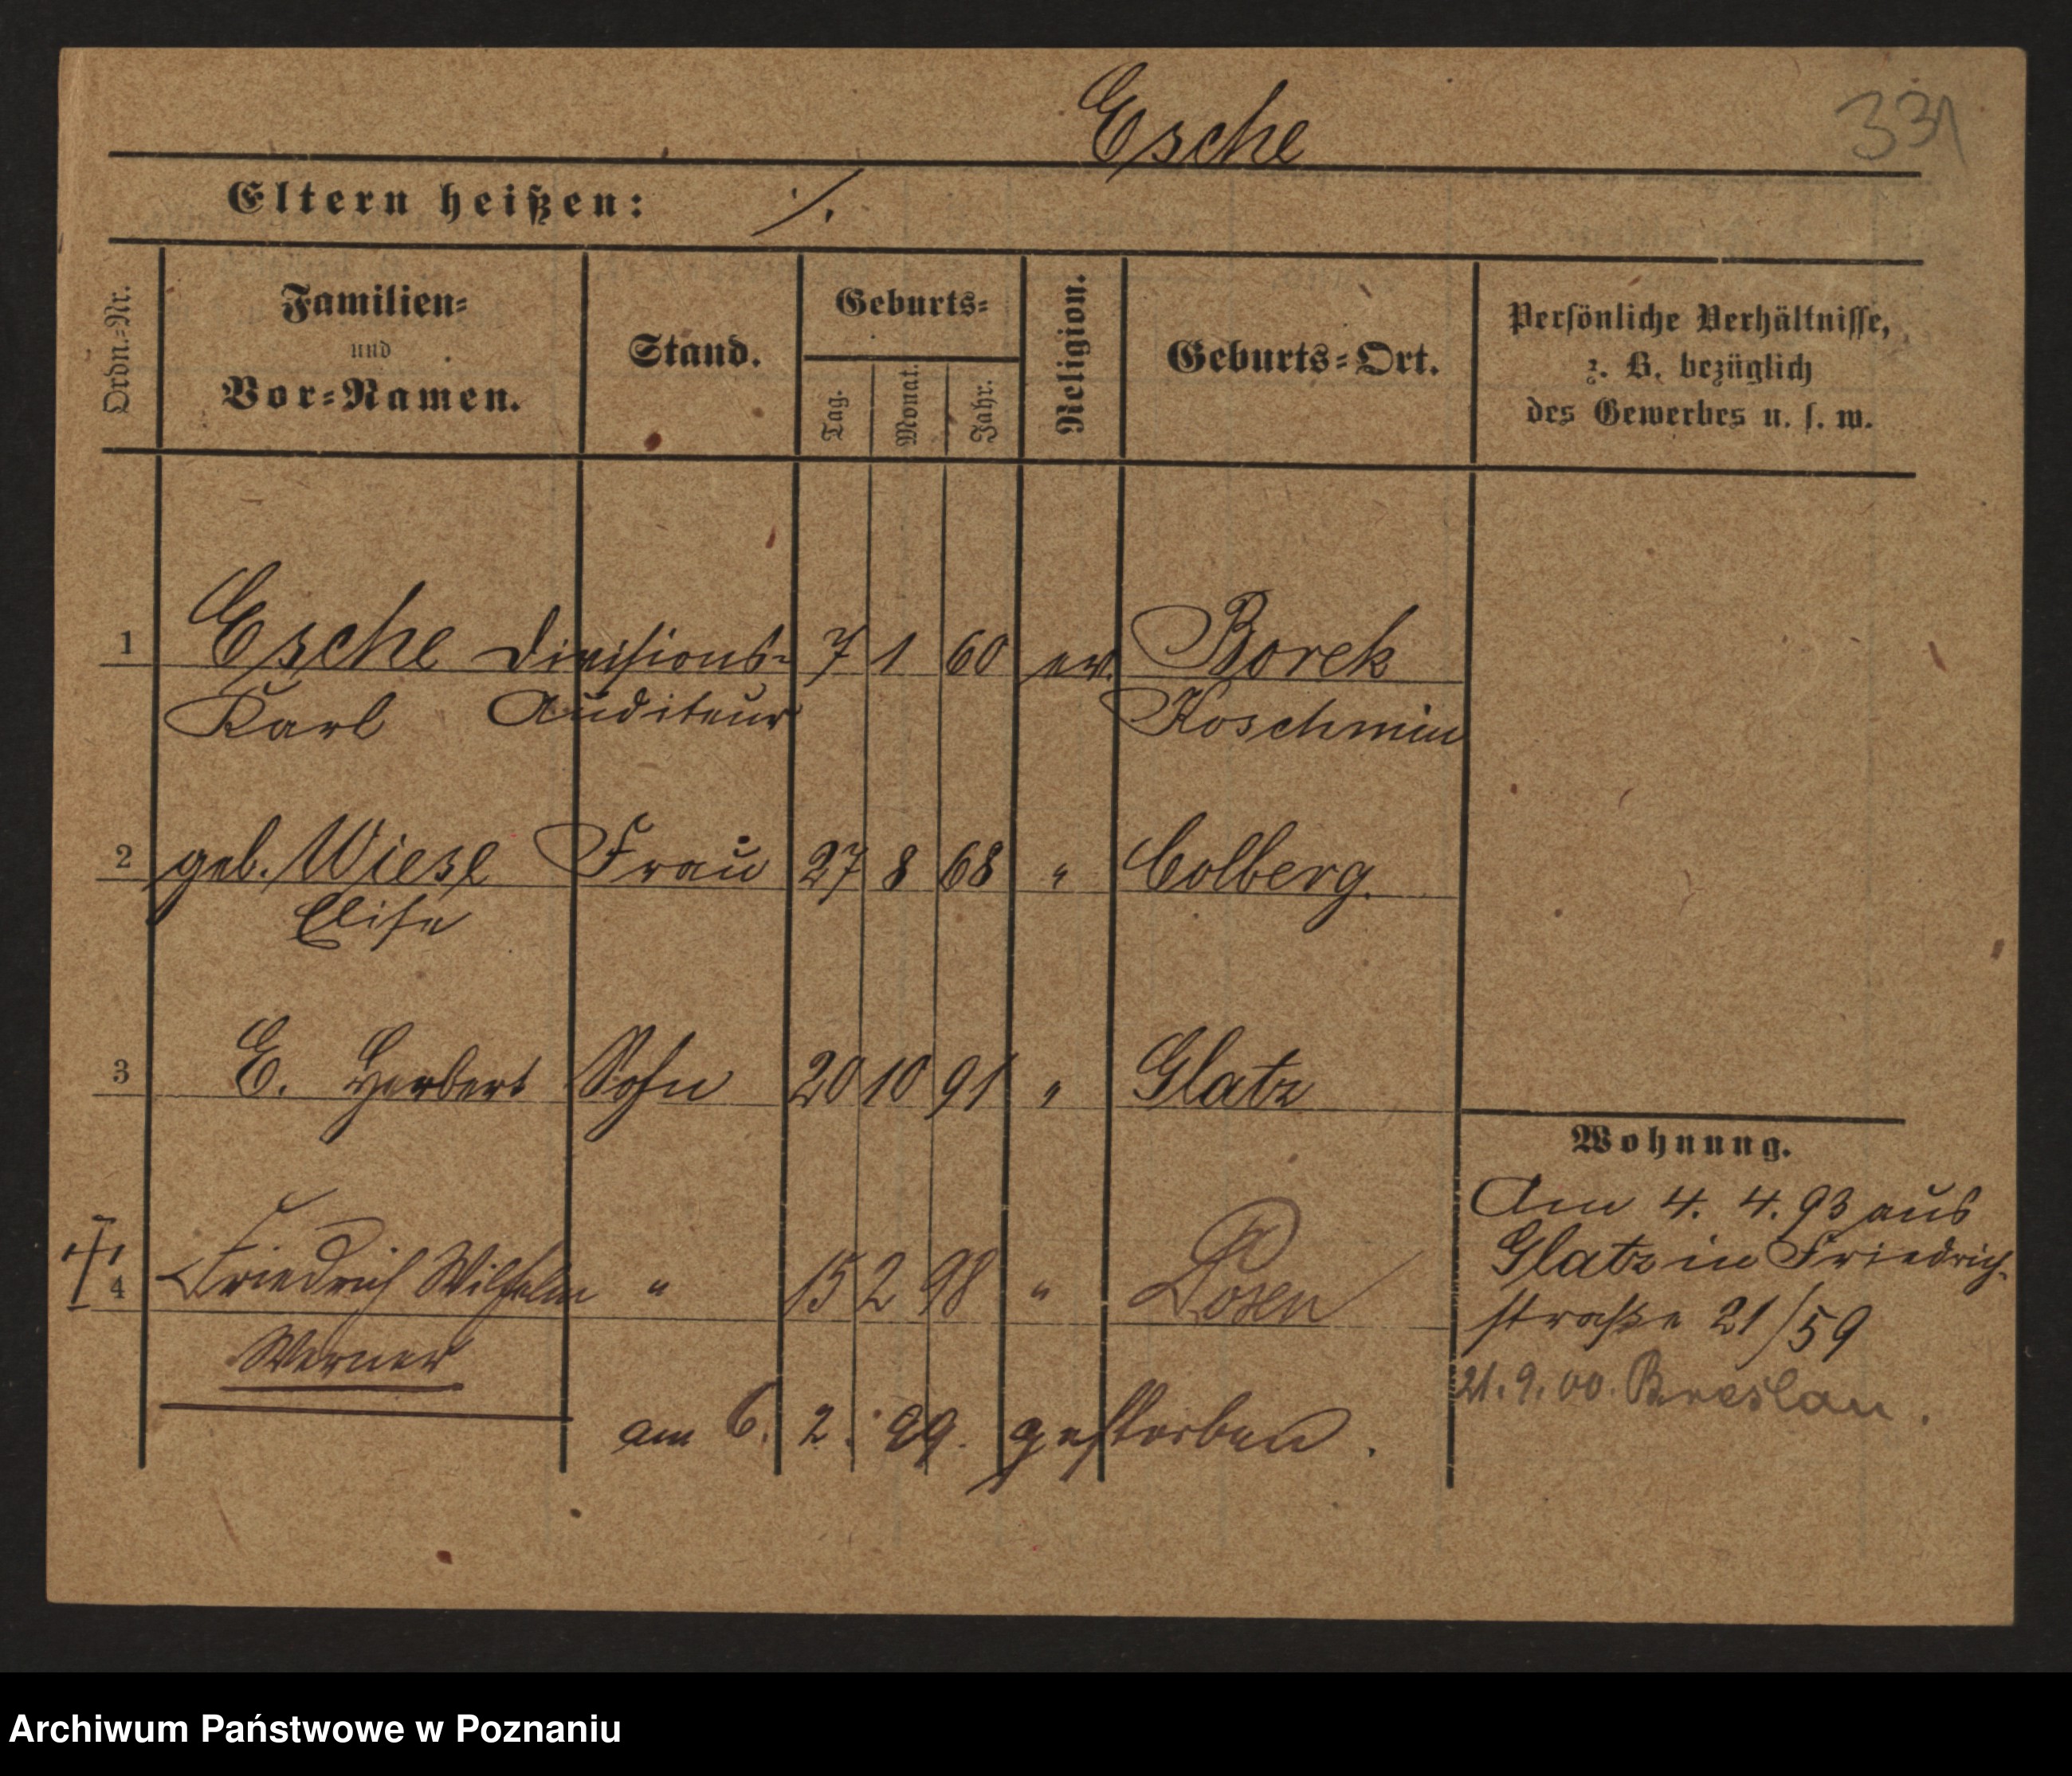 Esche
331
Eltern heißen: ./.
Ordn.-Nr.
Familien-
und
Vor-Namen.
Stand.
Geburts-
Tag.
Monat.
Jahr.
Religion.
Geburts-Ort.
Persönliche Verhältnisse,
z. B. bezüglich
des Gewerbes u. s. w.
1 Esche Divisions- 7 1 60 ev. Borek
Karl Auditeur Koschmin
2 geb. Wiese Frau 27 8 68 " Colberg.
Elise
3 E. Herbert Sohn 20 10 91 " Glatz
Wohnung.
Am 4. 4. 93 aus
Glatz in Friedrich-
straße 21/59
21. 9. 00. Breslau.
4 Friedrich Wilhelm " 15 2 98 " Posen
Werner
am 6. 2. 99. gestorben.
Archiwum Państwowe w Poznaniu